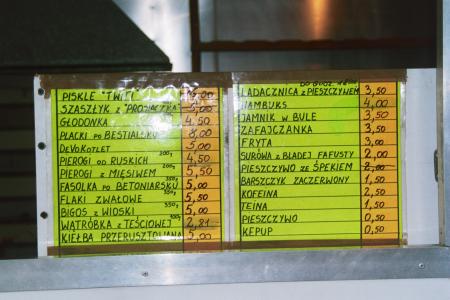 PISKLE "TWITI" 9,00
SZASZŁYK z "PROSIACZKA" 5,00
GŁODONKA 4,50
PLACKI po BESTIALSKU 8,00
DEVOKOTLET 5,00
PIEROGI od RUSKICH 200g 4,50
PIEROGI z MIĘSIWEM 200g 5,50
FASOLKA po BETONIARSKU 350g 5,00
FLAKI ZWAŁOWE 350g 5,50
BIGOS z WIOSKI 350g 5,00
WĄTRÓBKA z TEŚCIOWEJ 100g 2,81
KIEŁBA PRZERUSZTOWANA 5,00
DO GODZ.
ŁADACZNICA z PIESZCZYWEM 3,50
HAMBUKS 4,00
JAMNIK w BULE 3,50
ZAFAJCZANKA 3,50
FRYTA 3,00
SURÓWA z BLADEJ FAFUSTY 2,00
PIESZCZYWO ZE ŚPEKIEM 2,00
BARSZCZYK ZACZERWONY 1,50
KOFEINA 2,50
TEINA 1,50
PIESZCZYWO 0,50
KEPUP 0,50